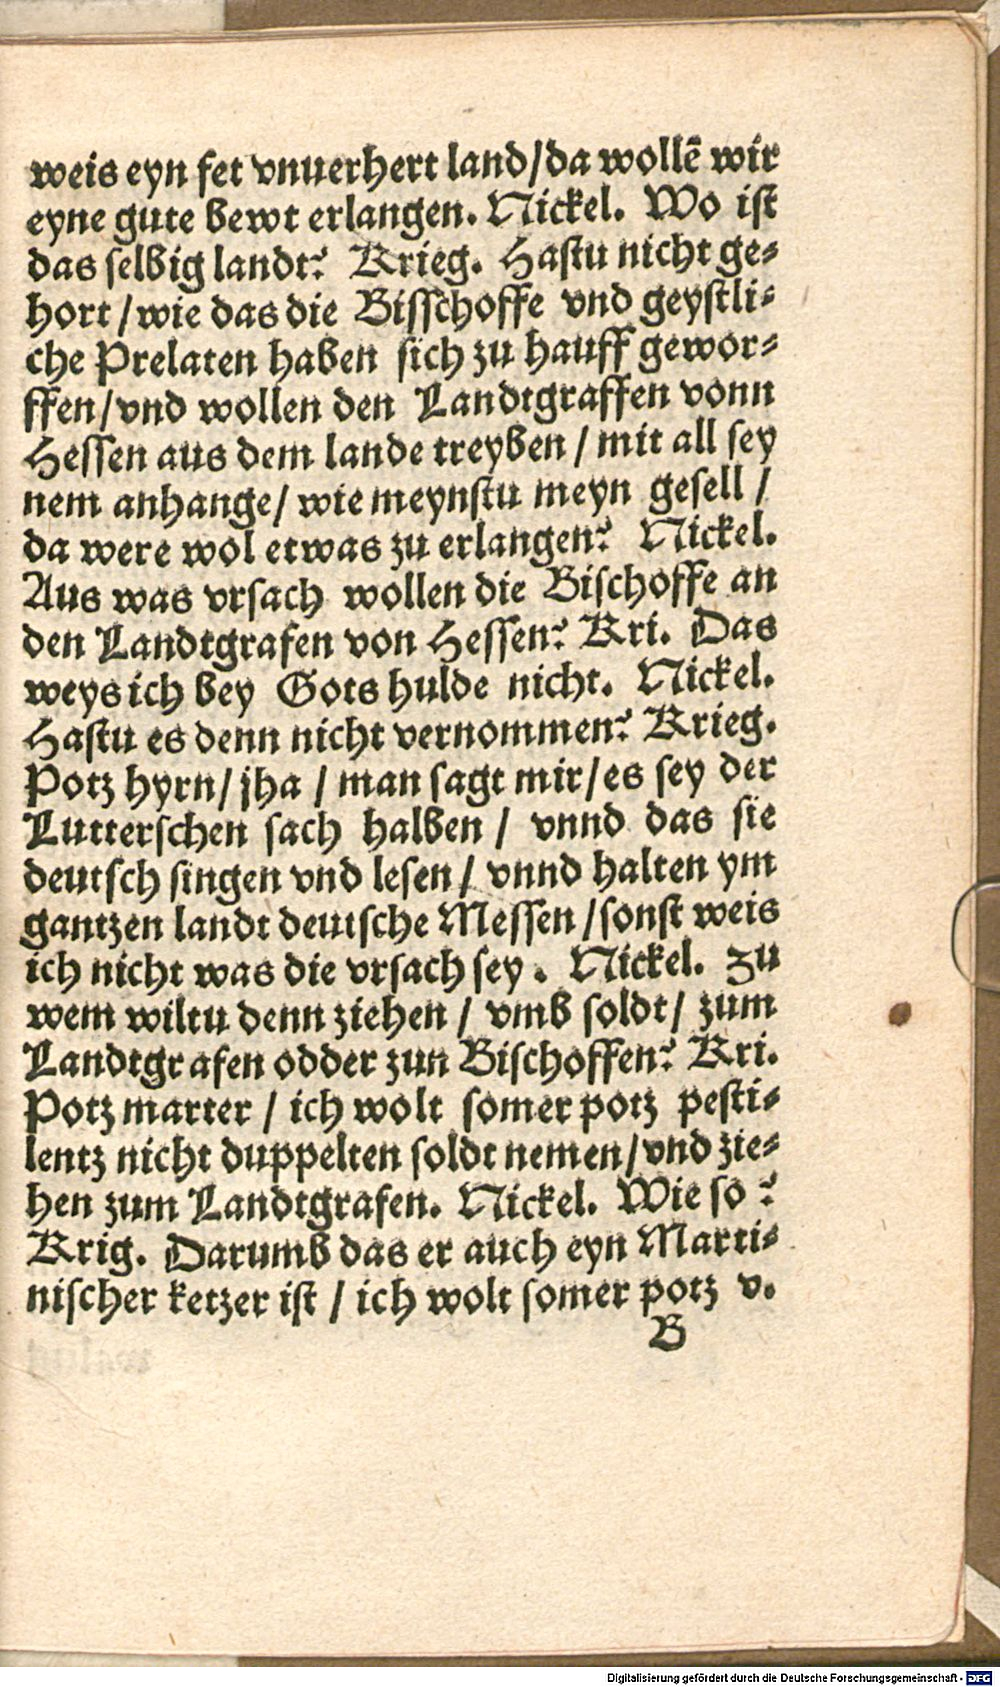 weis eyn fet vnuerhert land/da wollē wir
eyne gute bewt erlangen. Nickel. Wo ist
das selbig landt? Krieg. Hastu nicht ge-
hort/wie das die Bisschoffe vnd geystli-
che Prelaten haben sich zu hauff gewor-
ffen/vnd wollen den Landtgraffen vonn
Hessen aus dem lande treyben/mit all sey
nem anhange/wie meynstu meyn gesell/
da were wol etwas zu erlangen? Nickel.
Aus was vrsach wollen die Bischoffe an
den Landtgrafen von Hessen? Kri. Das
weys ich bey Gots hulde nicht. Nickel.
Hastu es denn nicht vernommen? Krieg.
Potz hyrn/jha/man sagt mir/es sey der
Lutterschen sach halben/vnnd das sie
deutsch singen vnd lesen/vnnd halten ym
gantzen landt deutsche Messen/sonst weis
ich nicht was die vrsach sey. Nickel. Zu
wem wiltu denn ziehen/vmb soldt/zum
Landtgrafen odder zun Bischoffen? Kri.
Potz marter/ich wolt somer potz pesti-
lentz nicht duppelten soldt nemen/vnd zie-
hen zum Landtgrafen. Nickel. Wie so?
Krig. Darumb das er auch eyn Marti-
nischer ketzer ist/ich wolt somer potz v.
B
Digitalisierung gefördert durch die Deutsche Forschungsgemeinschaft - DFG